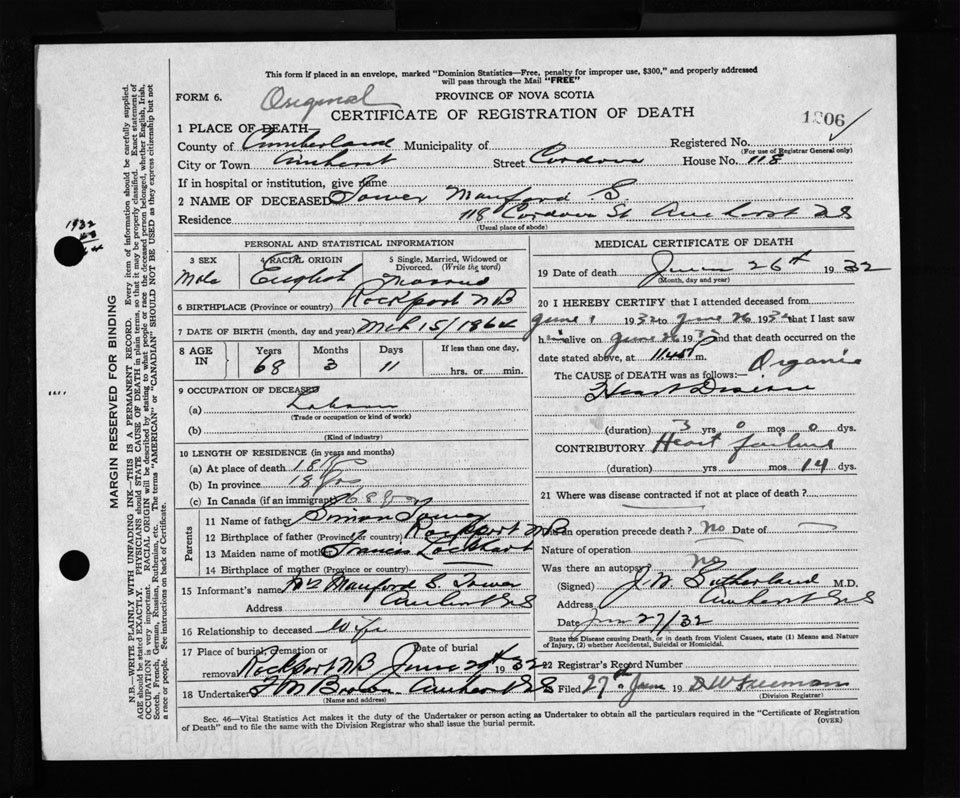 This form if placed in an envelope, marked "Dominion Statistics—Free, penalty for improper use, $300," and properly addressed
will pass through the Mail "FREE"
FORM 6. Original PROVINCE OF NOVA SCOTIA
CERTIFICATE OF REGISTRATION OF DEATH
1 PLACE OF DEATH
County of Cumberland Municipality of Registered No.
(For use of Registrar General only)
City or Town Amherst Street Cordova House No. 118
If in hospital or institution, give name
2 NAME OF DECEASED Tower Manford S.
Residence 118 Cordova St Amherst NS
(Usual place of abode)
PERSONAL AND STATISTICAL INFORMATION
3 SEX 4 RACIAL ORIGIN 5 Single, Married, Widowed or
Divorced. (Write the word)
Male English Married
6 BIRTHPLACE (Province or country) Rockport NB
7 DATE OF BIRTH (month, day and year) Mch 15/1864
8 AGE IN Years Months Days If less than one day,
68 3 11 hrs. or min.
9 OCCUPATION OF DECEASED
(a)
(Trade or occupation or kind of work)
(b)
(Kind of industry)
10 LENGTH OF RESIDENCE (in years and months)
(a) At place of death 18
(b) In province 18 yrs
(c) In Canada (if an immigrant) 68 yrs
Parents
11 Name of father Simon Tower
12 Birthplace of father (Province or country) Rockport NB
13 Maiden name of mother Francis Lockhart
14 Birthplace of mother (Province or country)
15 Informant's name Mrs Manford S. Tower
Address Amherst NS
16 Relationship to deceased Wife
17 Place of burial, cremation or removal Date of burial
Rockport NB June 1932
18 Undertaker Brown Amherst NS
(Name and address)
MEDICAL CERTIFICATE OF DEATH
19 Date of death June 26th 1932
(Month, day and year)
20 I HEREBY CERTIFY that I attended deceased from
June 1 1932 to June 26 1932 that I last saw
him alive on June 26 1932 and that death occurred on the
date stated above, at m.
The CAUSE of DEATH was as follows:- Organic
Heart Disease
(duration) 3 yrs 0 mos 0 dys.
CONTRIBUTORY Heart failure
(duration) yrs mos 14 dys.
21 Where was disease contracted if not at place of death?
Did an operation precede death? no Date of
Nature of operation
Was there an autopsy no
(Signed) J. W. Sutherland M.D.
Address Amherst NS
Date Jun 27/32
State the Disease causing Death, or in death from Violent Causes, state (1) Means and Nature
of Injury, (2) whether Accidental, Suicidal or Homicidal.
22 Registrar's Record Number
Filed 27th June 19 D W Freeman
(Division Registrar)
Sec. 46—Vital Statistics Act makes it the duty of the Undertaker or person acting as Undertaker to obtain all the particulars required in the "Certificate of Registration
of Death" and to file the same with the Division Registrar who shall issue the burial permit. (OVER)
MARGIN RESERVED FOR BINDING
N.B.—WRITE PLAINLY WITH UNFADING INK—THIS IS A PERMANENT RECORD. Every item of information should be carefully supplied.
AGE should be stated EXACTLY. PHYSICIANS should STATE CAUSE OF DEATH in plain terms, so that it may be properly classified. Exact statement of
OCCUPATION is very important. RACIAL ORIGIN will be described by stating to what people or race the deceased person belonged, whether English, Irish,
Scotch, French, German, Russian, Ruthenian, etc. The terms "AMERICAN" or "CANADIAN" SHOULD NOT BE USED as they express citizenship but not
a race or people. See instructions on back of Certificate.
1932